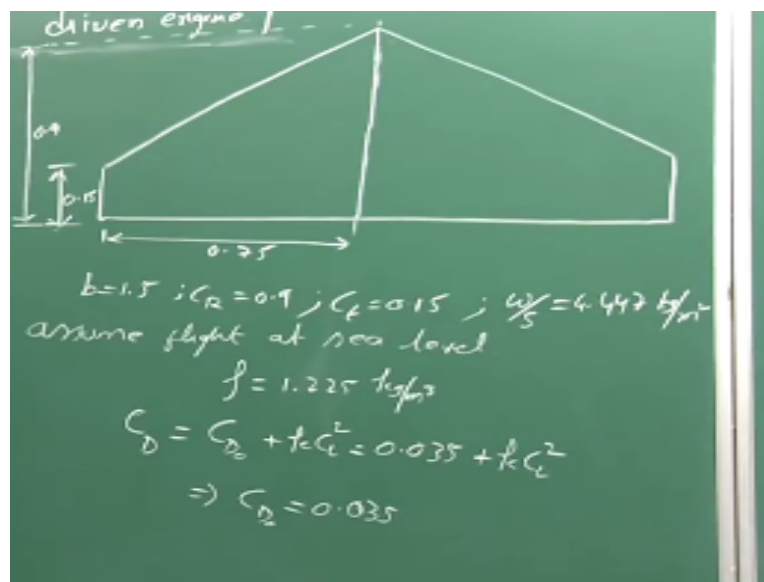 driven engine
0.9
0.15
0.75
b=1.5 ; C_R = 0.9 ; C_t = 0.15 ; W/S = 4.447 kg/m²
assume flight at sea level
ρ = 1.225 kg/m³
C_D = C_D₀ + kC_L² = 0.035 + kC_L²
⇒ C_D₀ = 0.035